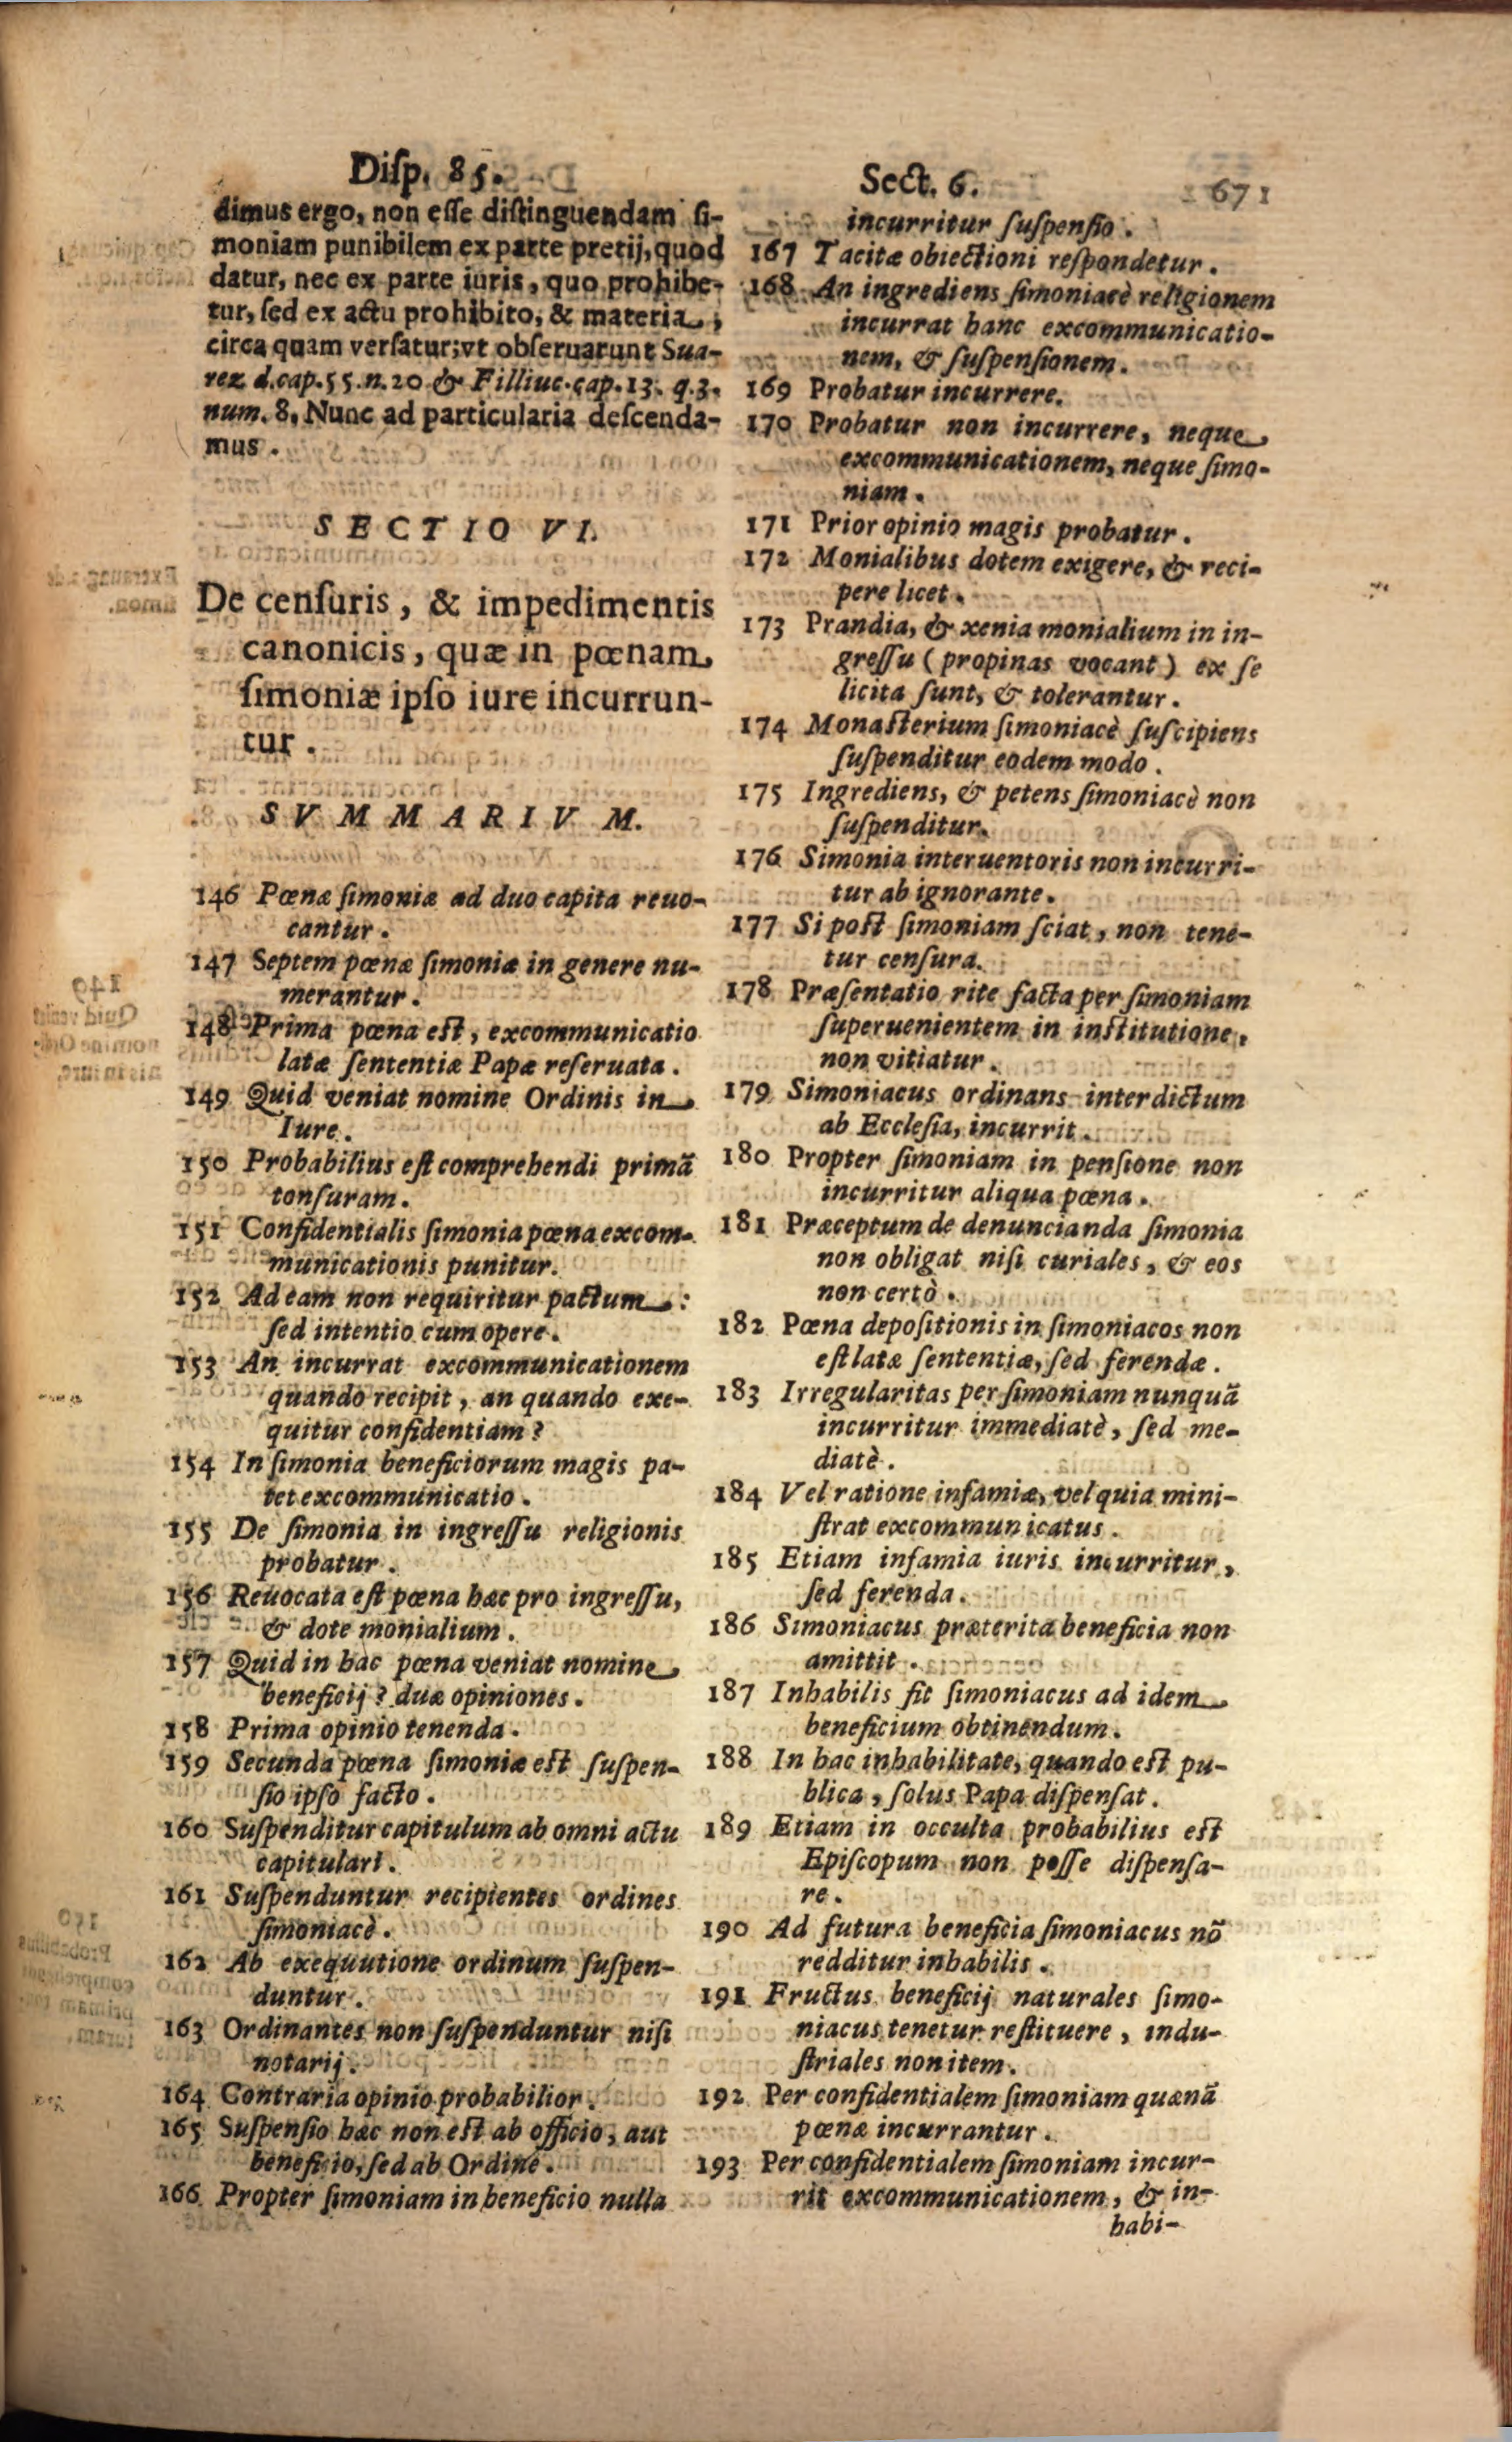 Diſp. 85.
dimus ergo, non eſſe diſtinguendam ſi-
moniam punibilem ex parte pretij, quod
datur, nec ex parte iuris, quo prohibe-
tur, ſed ex actu prohibito, & materia,
circa quam verſatur; vt obſeruarunt Sua-
rez d. cap. 55. n. 20 & Filliuc. cap. 13. q. 3.
num. 8. Nunc ad particularia deſcenda-
mus.
SECTIO VI.
De cenſuris, & impedimentis
canonicis, quæ in pœnam
ſimoniæ ipſo iure incurrun-
tur.
SVMMARIVM.
146 Pœnæ ſimoniæ ad duo capita reuo-
cantur.
147 Septem pœnæ ſimoniæ in genere nu-
merantur.
148 Prima pœna eſt, excommunicatio
latæ ſententiæ Papæ reſeruata.
149 Quid veniat nomine Ordinis in
Iure.
150 Probabilius eſt comprehendi primã
tonſuram.
151 Confidentialis ſimonia pœna excom-
municationis punitur.
152 Ad eam non requiritur pactum:
ſed intentio cum opere.
153 An incurrat excommunicationem
quando recipit, an quando exe-
quitur confidentiam?
154 In ſimonia beneficiorum magis pa-
tet excommunicatio.
155 De ſimonia in ingreſſu religionis
probatur.
156 Reuocata eſt pœna hæc pro ingreſſu,
& dote monialium.
157 Quid in hac pœna veniat nomine
beneficij? duæ opiniones.
158 Prima opinio tenenda.
159 Secunda pœna ſimoniæ eſt ſuſpen-
ſio ipſo facto.
160 Suſpenditur capitulum ab omni actu
capitulari.
161 Suſpenduntur recipientes ordines
ſimoniacè.
162 Ab exequutione ordinum ſuſpen-
duntur.
163 Ordinantes non ſuſpenduntur niſi
notarij.
164 Contraria opinio probabilior.
165 Suſpenſio hæc non eſt ab officio, aut
beneficio, ſed ab Ordine.
166 Propter ſimoniam in beneficio nulla
Sect. 6.
671
incurritur ſuſpenſio.
167 Tacitæ obiectioni reſpondetur.
168 An ingrediens ſimoniacè religionem
incurrat hanc excommunicatio-
nem, & ſuſpenſionem.
169 Probatur incurrere.
170 Probatur non incurrere, neque
excommunicationem, neque ſimo-
niam.
171 Prior opinio magis probatur.
172 Monialibus dotem exigere, & reci-
pere licet.
173 Prandia, & xenia monialium in in-
greſſu (propinas vocant) ex ſe
licita ſunt, & tolerantur.
174 Monaſterium ſimoniacè ſuſcipiens
ſuſpenditur eodem modo.
175 Ingrediens, & petens ſimoniacè non
ſuſpenditur.
176 Simonia interuentoris non incurri-
tur ab ignorante.
177 Si poſt ſimoniam ſciat, non tene-
tur cenſura.
178 Præſentatio rite facta per ſimoniam
ſuperuenientem in inſtitutione,
non vitiatur.
179 Simoniacus ordinans interdictum
ab Eccleſia, incurrit.
180 Propter ſimoniam in penſione non
incurritur aliqua pœna.
181 Præceptum de denuncianda ſimonia
non obligat niſi curiales, & eos
non certò.
182 Pœna depoſitionis in ſimoniacos non
eſt latæ ſententiæ, ſed ferendæ.
183 Irregularitas per ſimoniam nunquã
incurritur immediatè, ſed me-
diatè.
184 Vel ratione infamiæ, vel quia mini-
ſtrat excommunicatus.
185 Etiam infamia iuris incurritur,
ſed ferenda.
186 Simoniacus præterita beneficia non
amittit.
187 Inhabilis fit ſimoniacus ad idem
beneficium obtinendum.
188 In hac inhabilitate, quando eſt pu-
blica, ſolus Papa diſpenſat.
189 Etiam in occulta probabilius eſt
Epiſcopum non poſſe diſpenſa-
re.
190 Ad futura beneficia ſimoniacus nõ
redditur inhabilis.
191 Fructus beneficij naturales ſimo-
niacus tenetur reſtituere, indu-
ſtriales non item.
192 Per confidentialem ſimoniam quænã
pœnæ incurrantur.
193 Per confidentialem ſimoniam incur-
rit excommunicationem, & in-
habi-